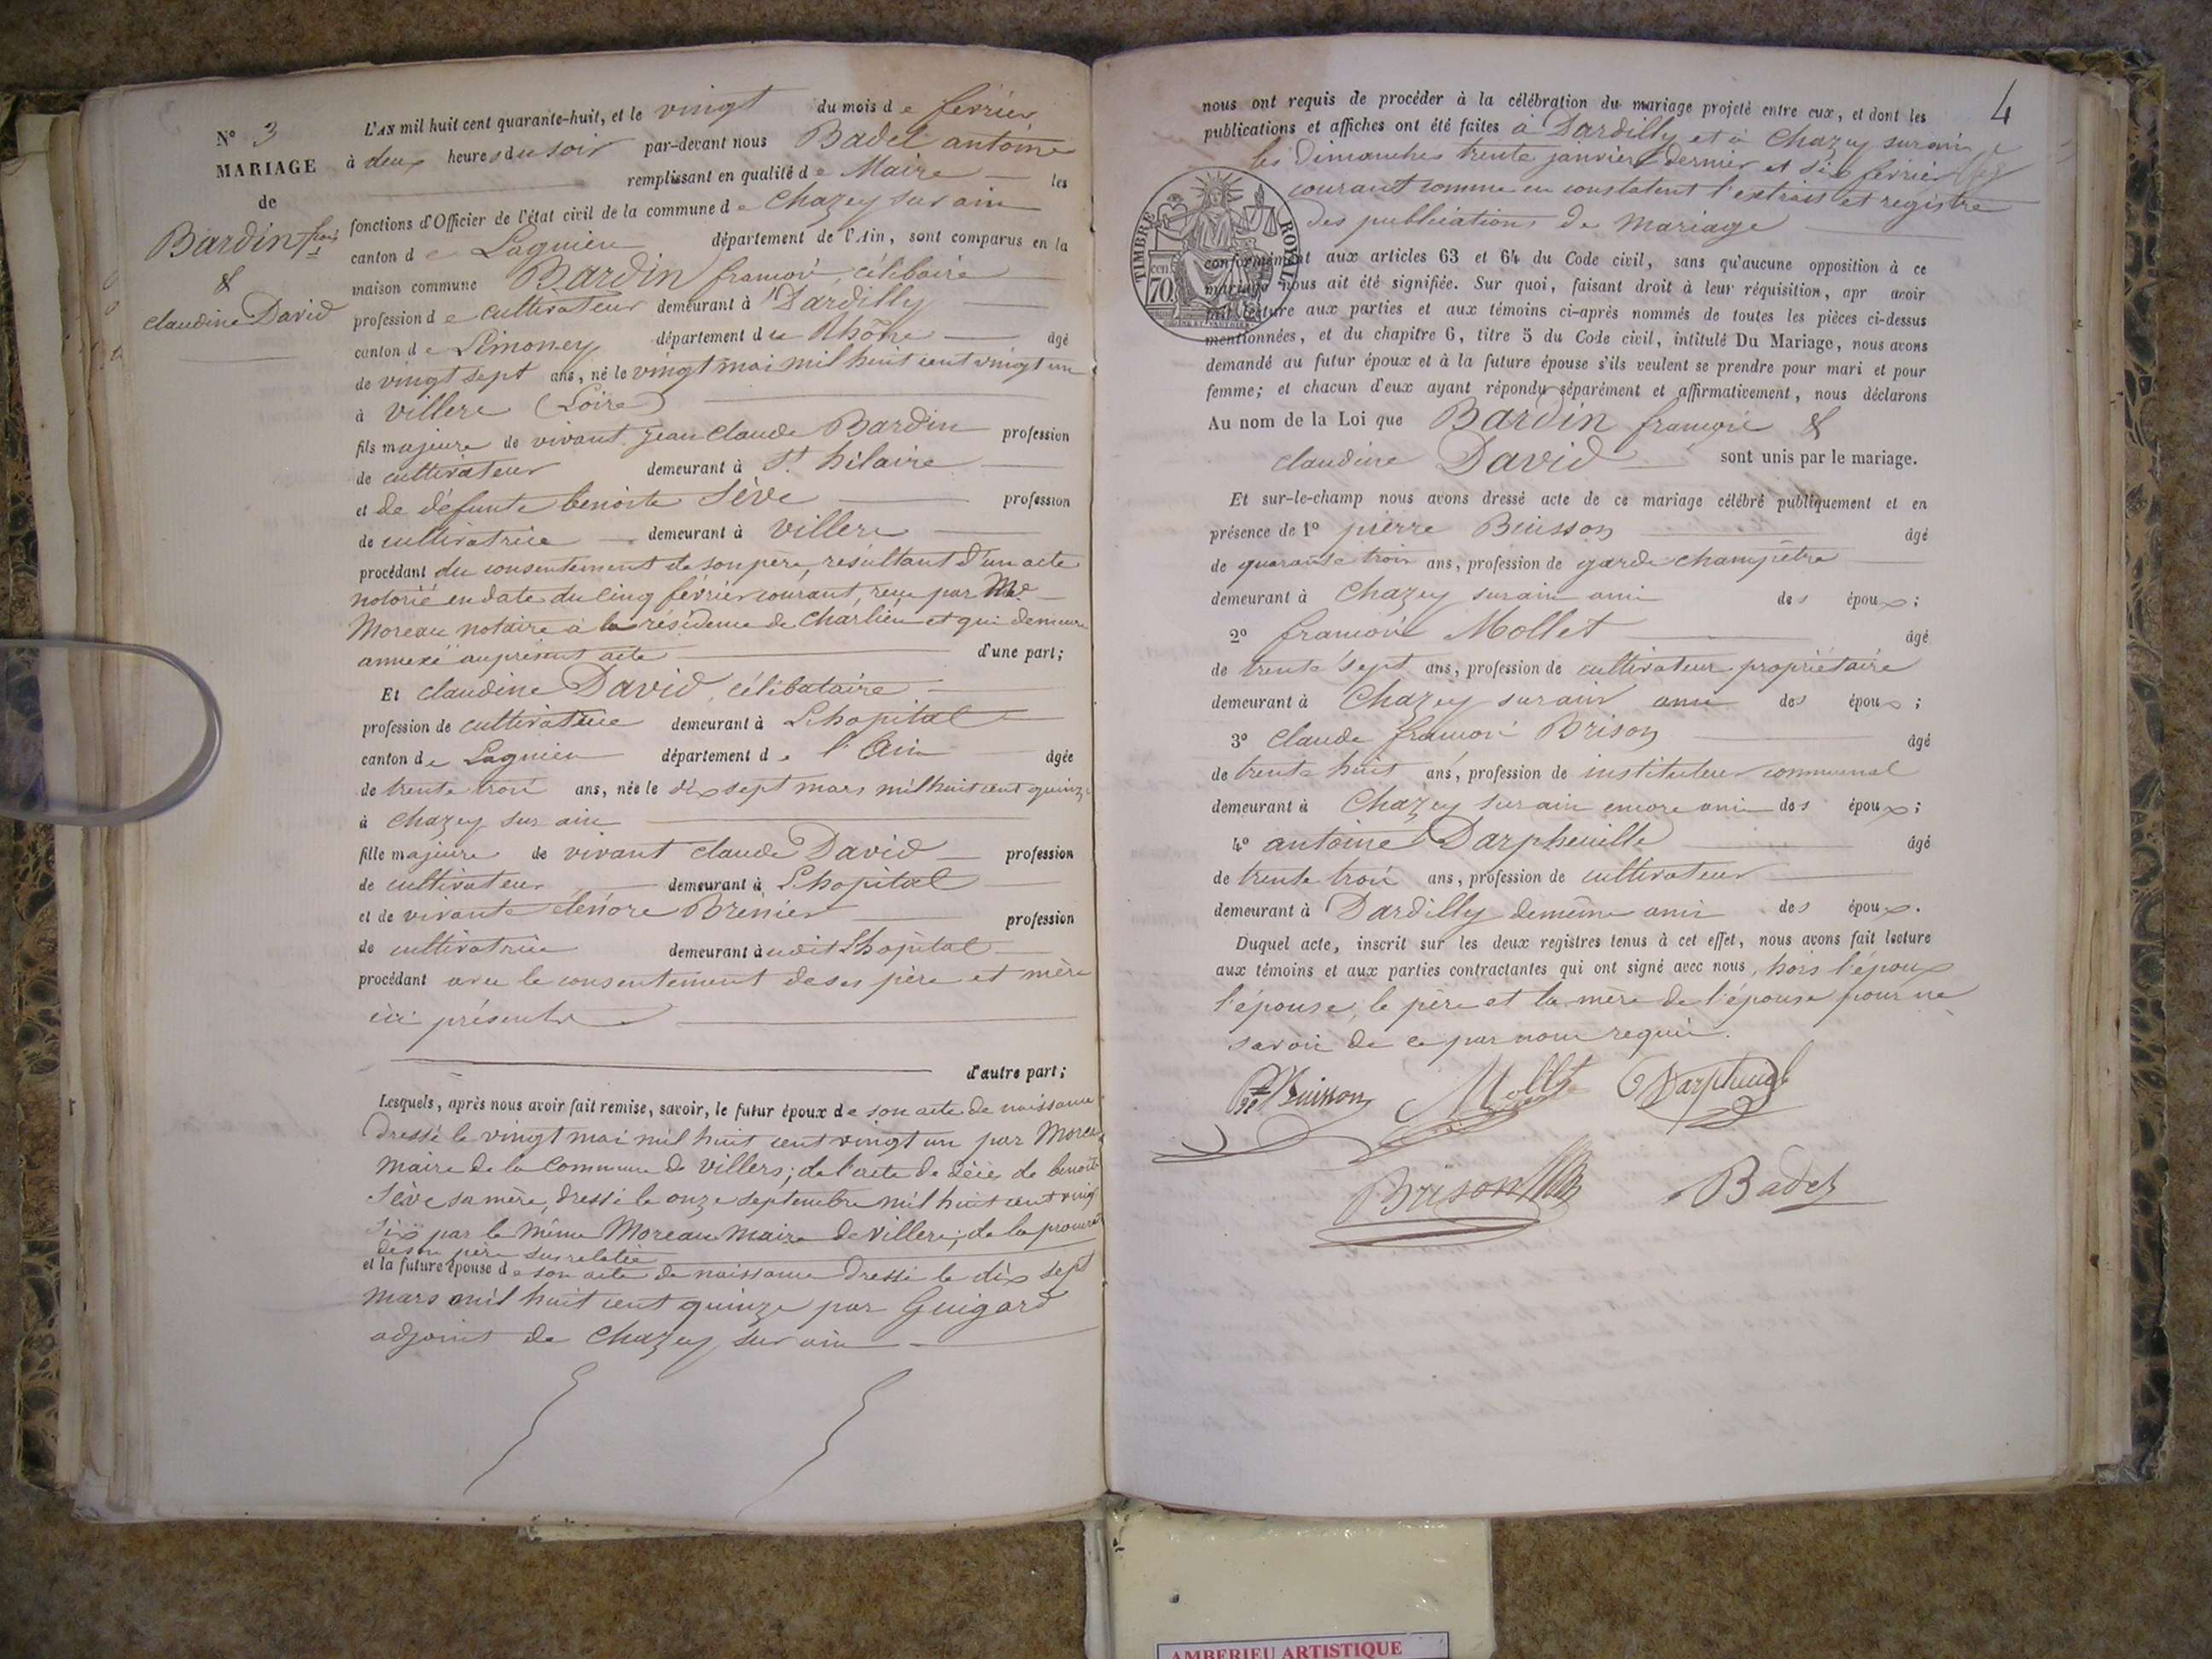 N° 3
MARIAGE
de
Bardin fçois
&
Claudine David
L'AN mil huit cent quarante-huit, et le vingt du mois de fevrier
à deux heures du soir par-devant nous Badel antoine
remplissant en qualité de Maire les
fonctions d'Officier de l'état civil de la commune de Chazey sur ain
canton de Lagnieu département de l'Ain, sont comparus en la
maison commune Bardin françois, célibaire
profession de cultivateur demeurant à Dardilly
canton de Limoney département du Rhône âgé
de vingt sept ans, né le vingt mai mil huit cent vingt un
à villers (Loire)
fils majeure de vivant Jean Claude Bardin profession
de cultivateur demeurant à St. hilaire
et de défunte benoite Sève profession
de cultivatrice demeurant à villers
procédant du consentement de son père, résultant d'un acte
notorié en date du cinq février courant, reçu par Me
Moreau notaire à la résidence de Charlieu et qui demeure
annexé au présent acte d'une part;
Et claudine David, célibataire
profession de cultivatrice demeurant à Lhopital
canton de Lagnieu département de l'Ain âgée
de trente trois ans, née le dix sept mars mil huit cent quinze
à Chazey sur ain
fille majeure de vivant claude David profession
de cultivateur demeurant à Lhopital
et de vivante elénore Brénier profession
de cultivatrice demeurant à udit Lhopital
procédant avec le consentement de ses père et mère
ici présents
d'autre part;
Lesquels, après nous avoir fait remise, savoir, le futur époux de son acte de naissance
dressé le vingt mai mil huit cent vingt un par Moreau
Maire de la Commune de Villers; de l'acte de décés de benoite
Sève sa mère, dressé le onze septembre mil huit cent vingt
six par le même Moreau Maire de Villers; de la procura
de son père susrelatée
et la future épouse de son acte de naissance dressé le dix sept
mars mil huit cent quinze par Guigard
adjoint de Chazey sur ain
4
nous ont requis de procéder à la célébration du mariage projeté entre eux, et dont les
publications et affiches ont été faites à Dardilly et à Chazey sur ain
les dimanches trente janvier dernier et six février
courant comme en constatent l'extrait et registre
des publications de mariage
TIMBRE ROYAL
70 cen.
conformément aux articles 63 et 64 du Code civil, sans qu'aucune opposition à ce
mariage nous ait été signifiée. Sur quoi, faisant droit à leur réquisition, apr avoir
fait lecture aux parties et aux témoins ci-après nommés de toutes les pièces ci-dessus
mentionnées, et du chapitre 6, titre 5 du Code civil, intitulé Du Mariage, nous avons
demandé au futur époux et à la future épouse s'ils veulent se prendre pour mari et pour
femme; et chacun d'eux ayant répondu séparément et affirmativement, nous déclarons
Au nom de la Loi que Bardin françois &
claudine David sont unis par le mariage.
Et sur-le-champ nous avons dressé acte de ce mariage célébré publiquement et en
présence de 1° pierre Buisson âgé
de quarante trois ans, profession de garde champêtre
demeurant à Chazey sur ain ami des époux;
2° francois Mollet âgé
de trente sept ans, profession de cultivateur propriétaire
demeurant à Chazey sur ain ami des époux;
3° Claude françois Brison âgé
de trente huit ans, profession de instituteur communal
demeurant à Chazey sur ain encore ami des époux;
4° antoine Darpheuille âgé
de trente trois ans, profession de cultivateur
demeurant à Dardilly demême ami des époux.
Duquel acte, inscrit sur les deux registres tenus à cet effet, nous avons fait lecture
aux témoins et aux parties contractantes qui ont signé avec nous, hors l'époux
l'épouse, le père et la mère de l'épouse pour ne
savoir de ce par nous requis.
Buisson Mollet Darpheuille
Brison Badel
AMBERIEU ARTISTIQUE